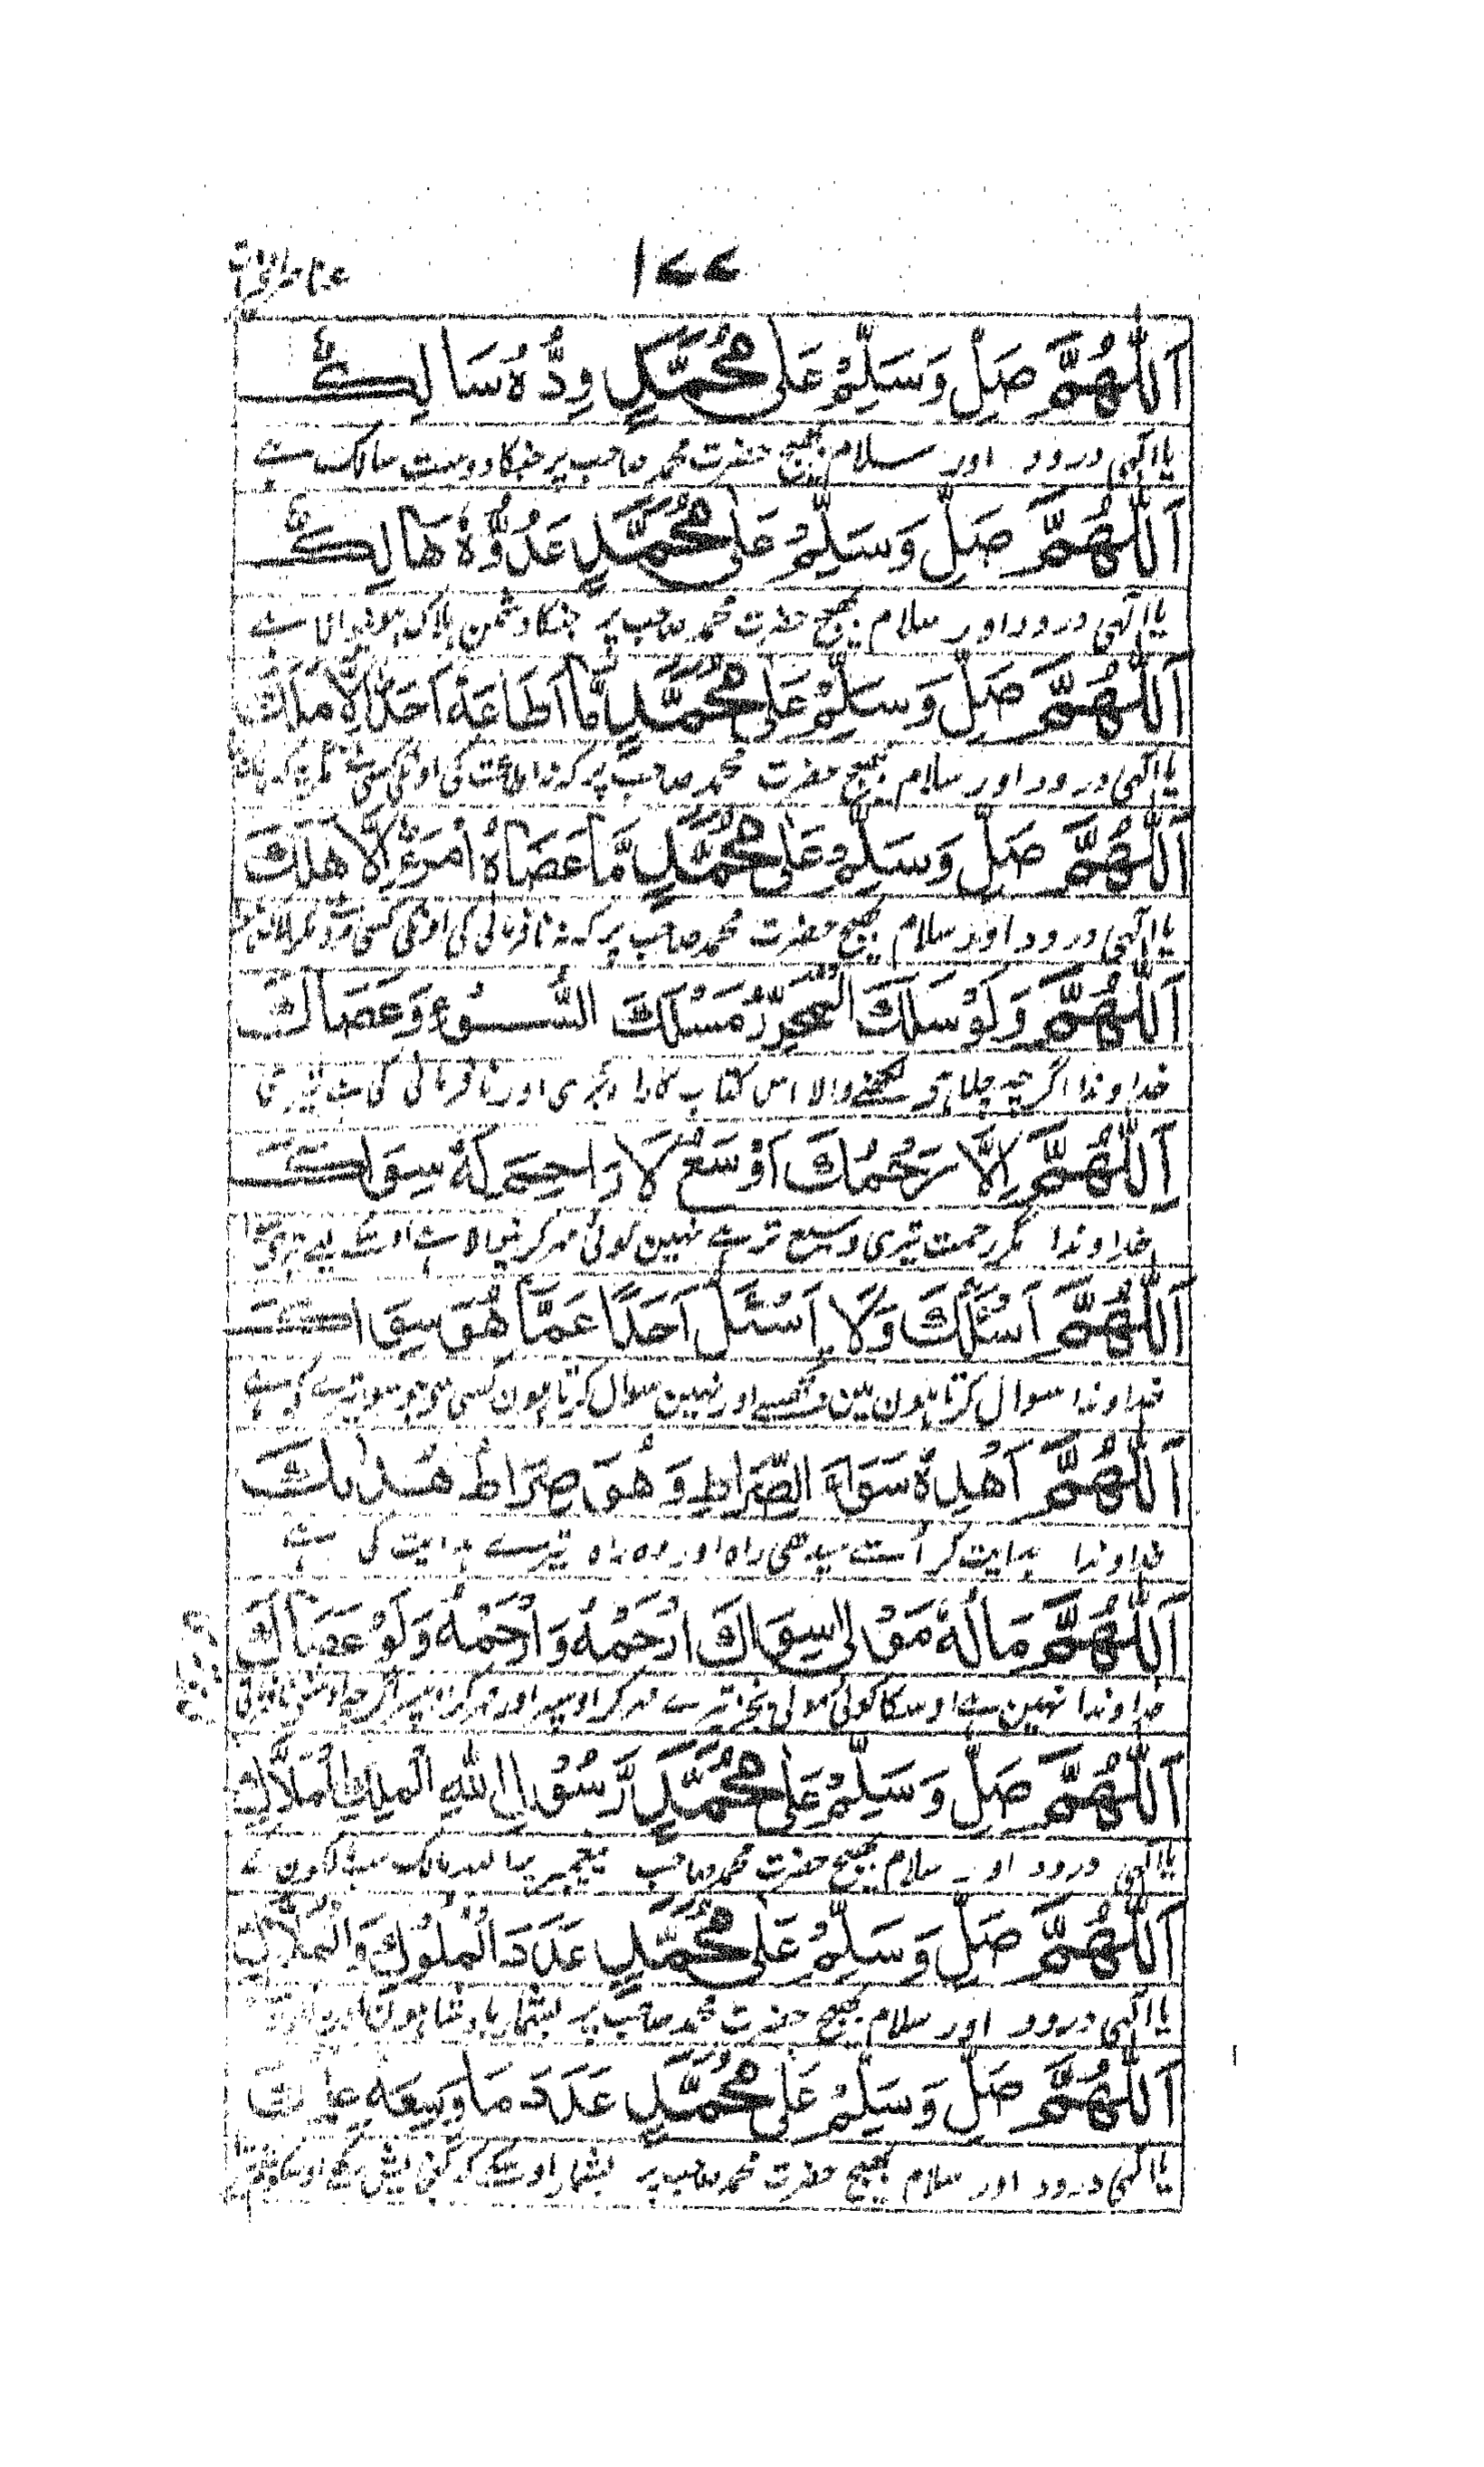 ۱۷۷
اَللّٰهُمَّ صَلِّ وَسَلِّمْ عَلٰى مُحَمَّدٍ وِدُّهٗ سَالِكٌ
یا الٰہی درود اور سلام بھیج حضرت محمد صاحب پر جنکا دوست سالک ہے
اَللّٰهُمَّ صَلِّ وَسَلِّمْ عَلٰى مُحَمَّدٍ عَدُوُّهٗ هَالِكٌ
یا الٰہی درود اور سلام بھیج حضرت محمد صاحب پر جنکا دشمن ہلاک ہونیوالا ہے
اَللّٰهُمَّ صَلِّ وَسَلِّمْ عَلٰى مُحَمَّدٍ مَّا اَطَاعَهٗ اَحَدٌ اِلَّا مَلَكَ
یا الٰہی درود اور سلام بھیج حضرت محمد صاحب پر کہ نہ اطاعت کی اونکی کسی نے مگر
اَللّٰهُمَّ صَلِّ وَسَلِّمْ عَلٰى مُحَمَّدٍ مَّا عَصَاهُ امْرَءٌ اِلَّا هَلَكَ
یا الٰہی درود اور سلام بھیج حضرت محمد صاحب پر کہ نہ نافرمانی کی اونکی کسی
اَللّٰهُمَّ وَلَوْ سَلَكَ الْمُحَرِّرُ مَسْلَكَ السُّوْءِ وَعَصَاكَ
خداوندا اگرچہ چلا ہو لکھنے والا اس کتاب کا راہ بدی اور نافرمانی کی ہے تیری
اَللّٰهُمَّ اِلَّا رَحْمُكَ اَوْسَعُ لَا رَاحِمَ لَهٗ سِوَاكَ
خداوندا مگر رحمت تیری وسیع تر ہے نہین کوئی مہر کرنیوالا ہے اوسکے لیے
اَللّٰهُمَّ اَسْئَلُكَ وَلَا اَسْئَلُ اَحَدًا عَمَّا هُوَ سِوَاكَ
خداوندا سوال کرتا ہون مین تجھسے اور نہین سوال کرتا ہون کسی سے جو سوا تیرے کے ہے
اَللّٰهُمَّ اَهْدِهٗ سَوَاءَ الصِّرَاطِ وَهُوَ صِرَاطُ هُدٰىكَ
خداوندا ہدایت کر اُسے سیدھی راہ اور وہ راہ تیرے ہدایت کی ہے
اَللّٰهُمَّ مَالَهٗ مَوْلٰى سِوَاكَ ارْحَمْهُ وَارْحَمْهُ وَلَوْ عَصَاكَ
خداوندا نہین ہے اوسکا کوئی مولی بجز تیرے مہر کر اوسپر اور مہر کر اوسپر اگرچہ
اَللّٰهُمَّ صَلِّ وَسَلِّمْ عَلٰى مُحَمَّدٍ رَّسُوْلِ اللّٰهِ الْمَلِكِ الْمَلَّاكِ
یا الٰہی درود اور سلام بھیج حضرت محمد صاحب پیغمبر
اَللّٰهُمَّ صَلِّ وَسَلِّمْ عَلٰى مُحَمَّدٍ عَدَدَ الْمُلُوْكِ وَالْمُلَّاكِ
یا الٰہی درود اور سلام بھیج حضرت محمد صاحب پر بشمار بادشاہون
اَللّٰهُمَّ صَلِّ وَسَلِّمْ عَلٰى مُحَمَّدٍ عَدَدَ مَا وَسِعَهٗ
یا الٰہی درود اور سلام بھیج حضرت محمد صاحب پر بشمار اوسکے کہ